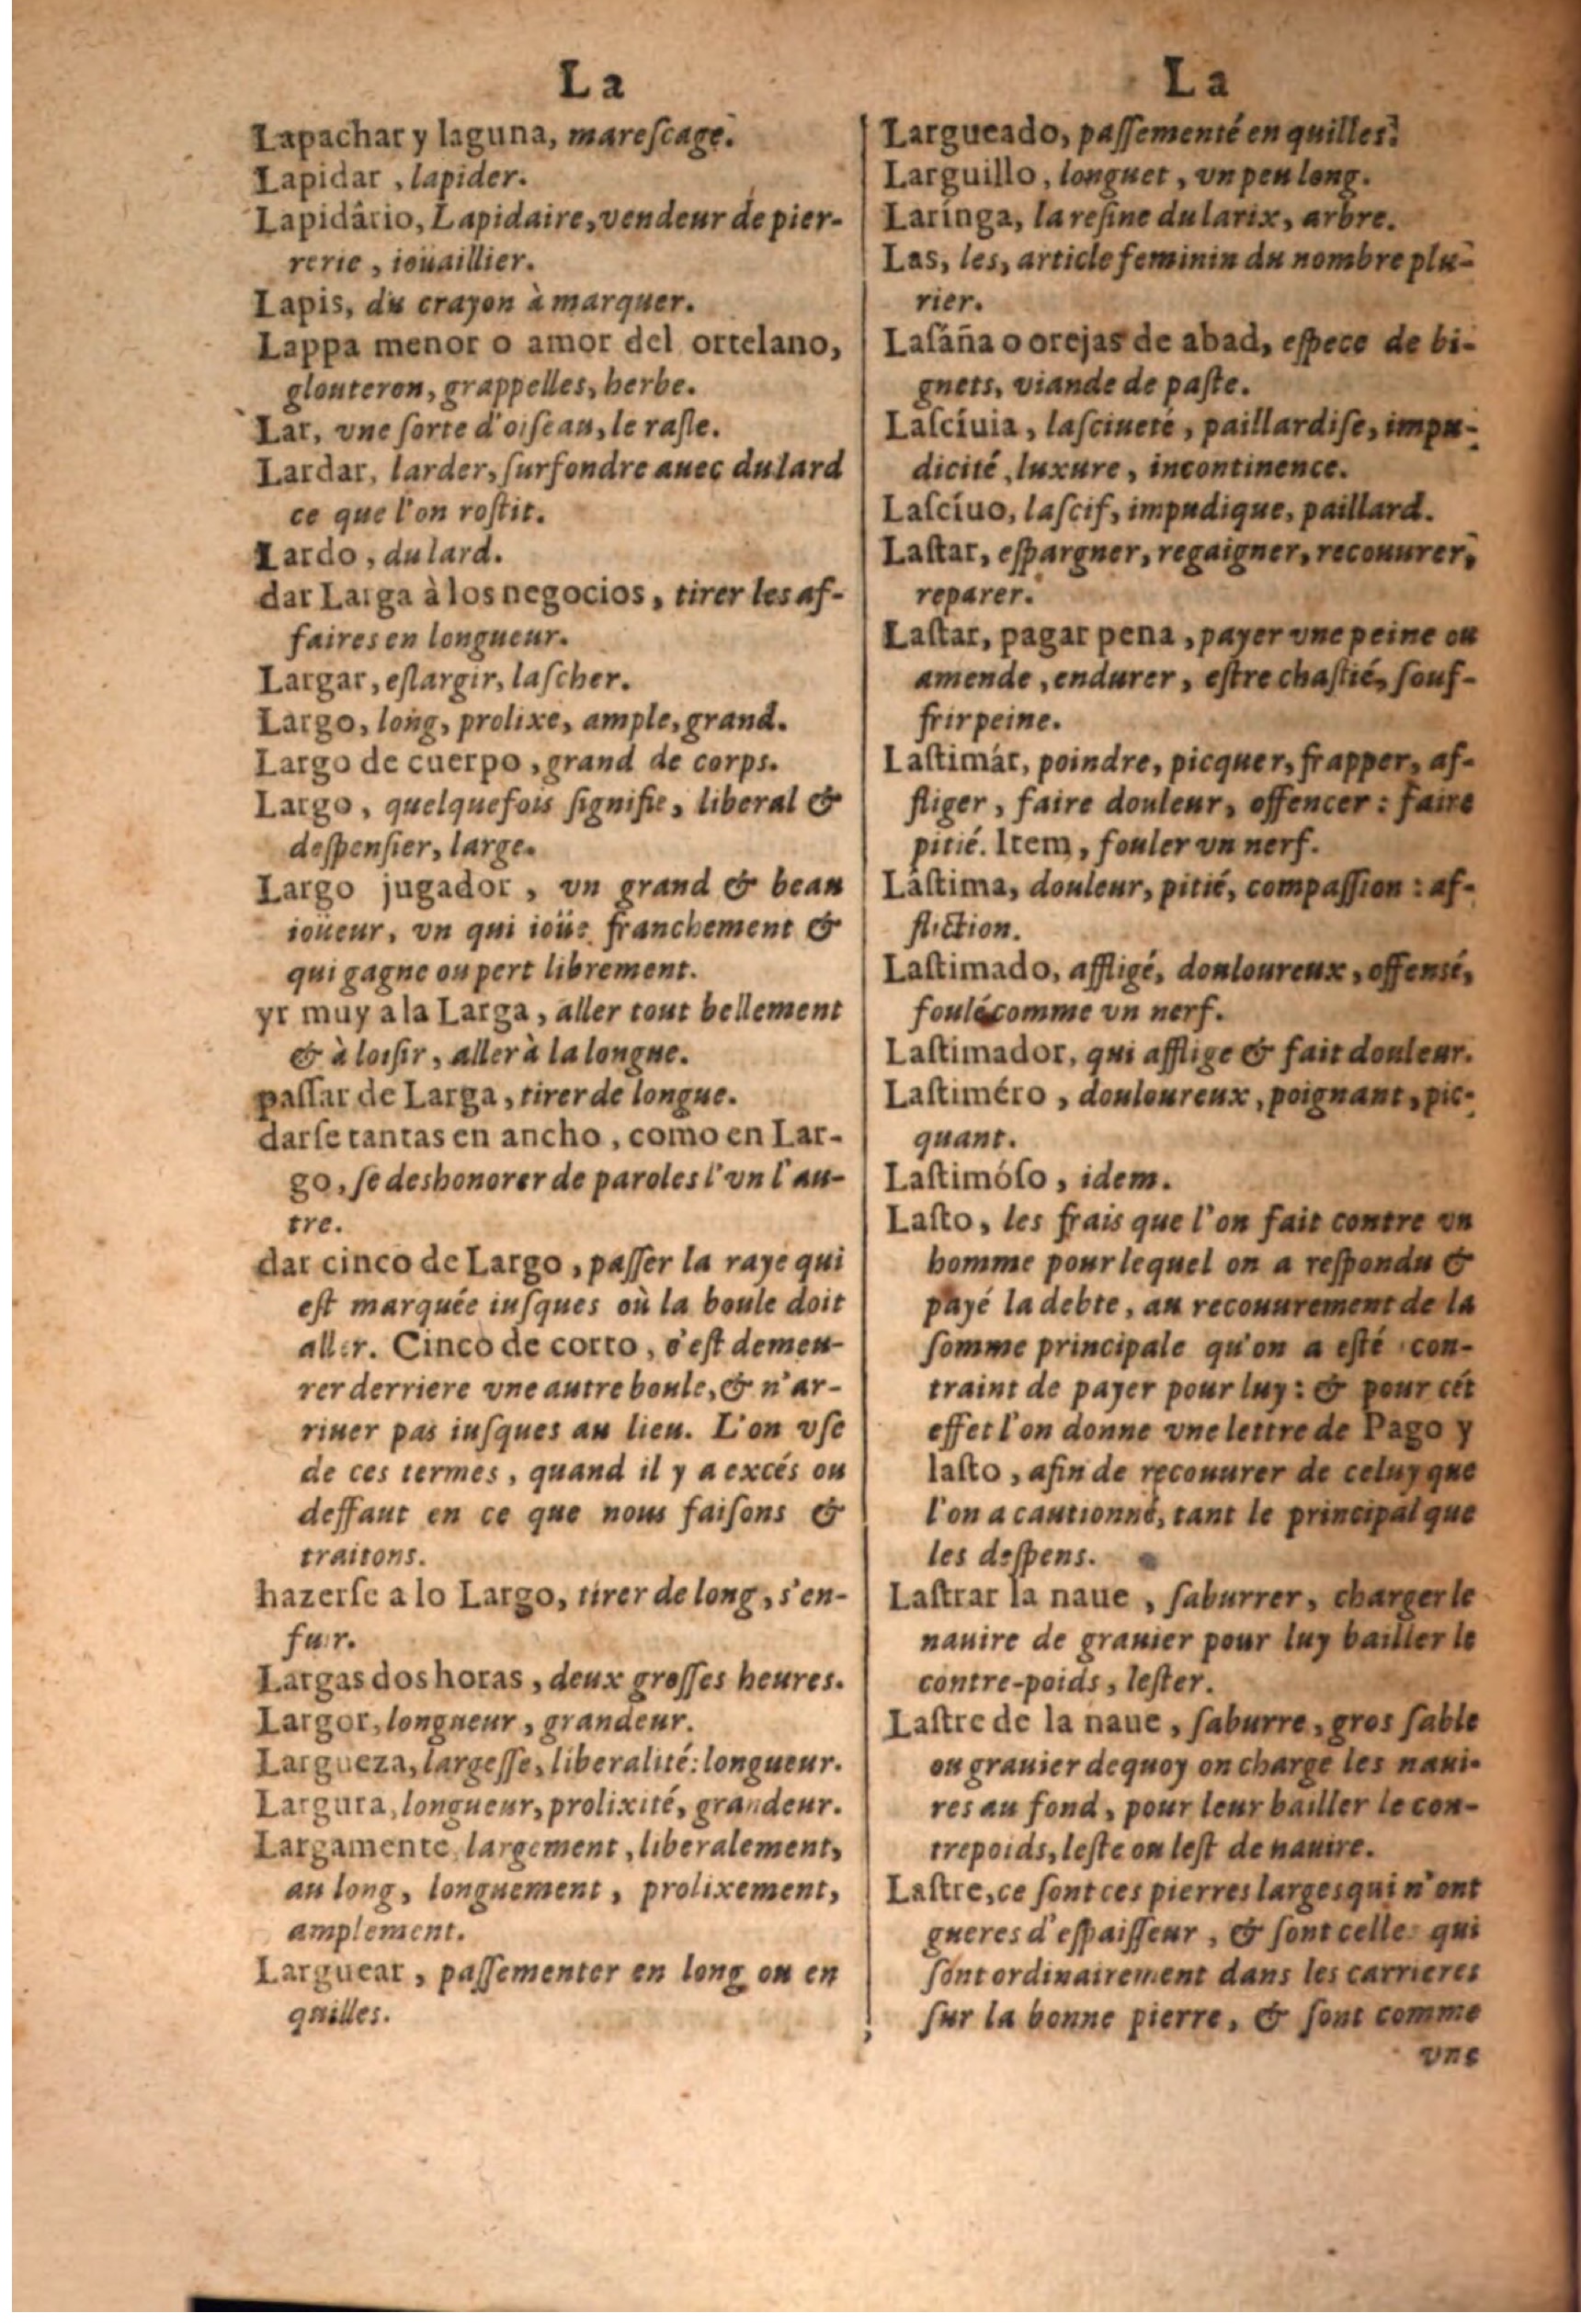 La
Lapachar y laguna, mareſcage.
Lapidar, lapider.
Lapidârio, Lapidaire, vendeur de pier-
rerie, ioüaillier.
Lapis, du crayon à marquer.
Lappa menor o amor del ortelano,
glouteron, grappelles, herbe.
Lar, vne ſorte d'oiſeau, le raſle.
Lardar, larder, ſurfondre auec du lard
ce que l'on roſtit.
Lardo, du lard.
dar Larga à los negocios, tirer les af-
faires en longueur.
Largar, eslargir, laſcher.
Largo, long, prolixe, ample, grand.
Largo de cuerpo, grand de corps.
Largo, quelquefois ſignifie, liberal &
deſpenſier, large.
Largo jugador, vn grand & beau
ioüeur, vn qui ioüe franchement &
qui gagne ou pert librement.
yr muy a la Larga, aller tout bellement
& à loiſir, aller à la longue.
paſſar de Larga, tirer de longue.
darſe tantas en ancho, como en Lar-
go, ſe deshonorer de paroles l'vn l'au-
tre.
dar cinco de Largo, paſſer la raye qui
eſt marquée iuſques où la boule doit
aller. Cinco de corto, c'eſt demeu-
rer derriere vne autre boule, & n'ar-
riuer pas iuſques au lieu. L'on vſe
de ces termes, quand il y a excés ou
deffaut en ce que nous faiſons &
traitons.
hazerſe a lo Largo, tirer de long, s'en-
fuir.
Largas dos horas, deux groſſes heures.
Largor, longueur, grandeur.
Largueza, largeſſe, liberalité: longueur.
Largura, longueur, prolixité, grandeur.
Largamente, largement, liberalement,
au long, longuement, prolixement,
amplement.
Larguear, paſſementer en long ou en
quilles.
La
Largueado, paſſementé en quilles.
Larguillo, longuet, vn peu long.
Laringa, la reſine du larix, arbre.
Las, les, article feminin du nombre plu-
rier.
Laſáña o orejas de abad, eſpece de bi-
gnets, viande de paſte.
Laſcíuia, laſciueté, paillardiſe, impu-
dicité, luxure, incontinence.
Laſcíuo, laſcif, impudique, paillard.
Laſtar, eſpargner, regaigner, recouurer,
reparer.
Laſtar, pagar pena, payer vne peine ou
amende, endurer, eſtre chaſtié, ſouf-
frir peine.
Laſtimár, poindre, picquer, frapper, af-
fliger, faire douleur, offencer: faire
pitié. Item, fouler vn nerf.
Láſtima, douleur, pitié, compaſſion: af-
fliction.
Laſtimado, affligé, douloureux, offensé,
foulé comme vn nerf.
Laſtimador, qui afflige & fait douleur.
Laſtiméro, douloureux, poignant, pic-
quant.
Laſtimóſo, idem.
Laſto, les frais que l'on fait contre vn
homme pour lequel on a reſpondu &
payé la debte, au recouurement de la
ſomme principale qu'on a eſté con-
traint de payer pour luy: & pour cét
effet l'on donne vne lettre de Pago y
laſto, afin de recouurer de celuy que
l'on a cautionné, tant le principal que
les deſpens.
Laſtrar la naue, ſaburrer, charger le
nauire de grauier pour luy bailler le
contre-poids, leſter.
Laſtre de la naue, ſaburre, gros ſable
ou grauier dequoy on charge les naui-
res au fond, pour leur bailler le con-
trepoids, leſte ou leſt de nauire.
Laſtre, ce ſont ces pierres larges qui n'ont
gueres d'eſpaiſſeur, & ſont celles qui
ſont ordinairement dans les carrieres
ſur la bonne pierre, & ſont comme
vne